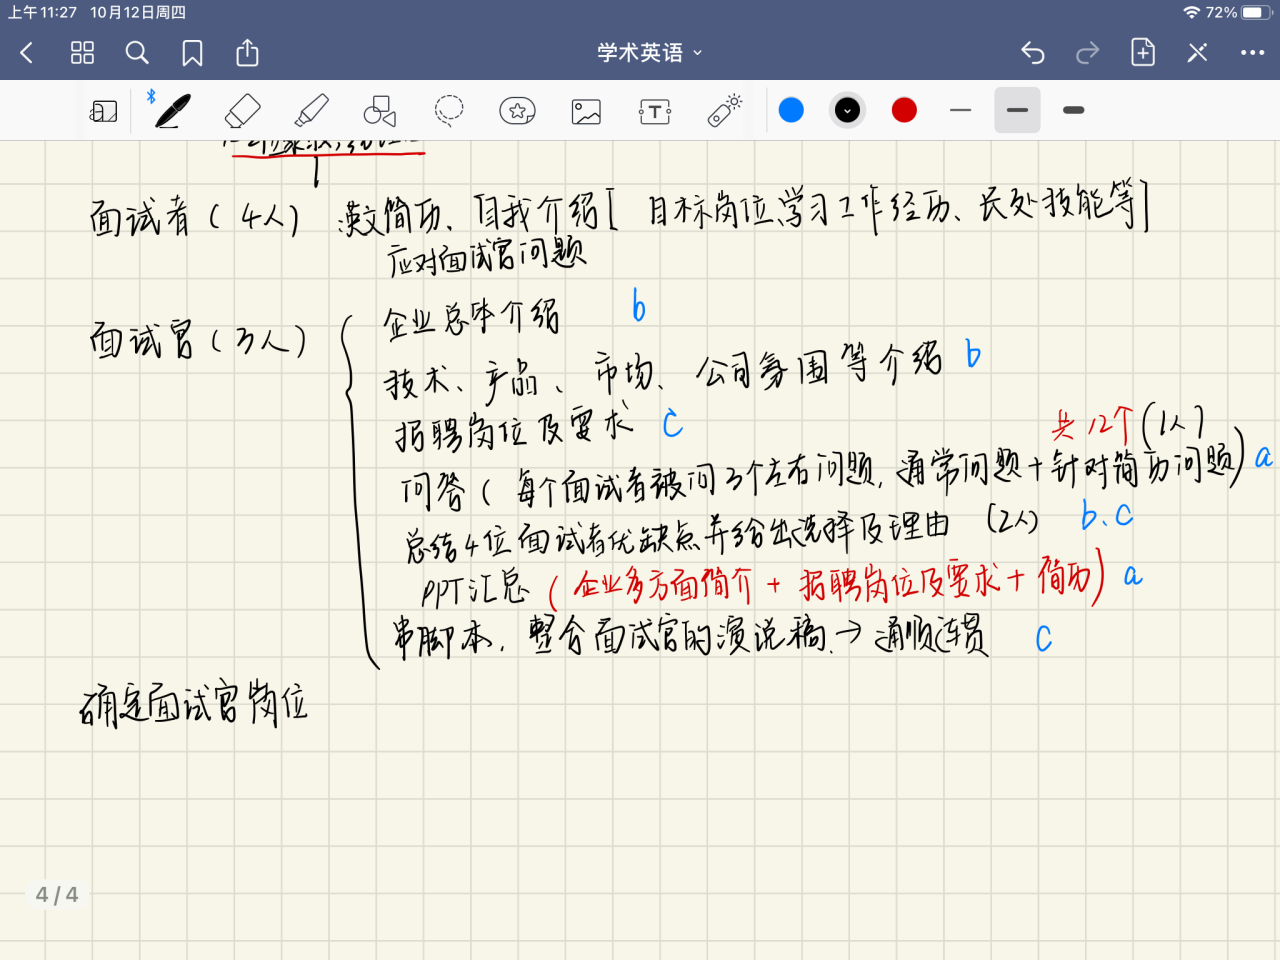 上午11:27 10月12日周四 72%
学术英语
面试者(4人) 英文简历、自我介绍[目标岗位、学习工作经历、长处技能等]
应对面试官问题
面试官(3人) 企业总体介绍 b
技术、产品、市场、公司氛围等介绍 b
招聘岗位及要求 c
共12个(1人)
问答(每个面试者被问3个左右问题,通常问题+针对简历问题) a
总结4位面试者优缺点并给出选择及理由 (2人) b.c
PPT汇总(企业多方面简介+招聘岗位及要求+简历) a
串脚本,整合面试官的演说稿→通顺连贯 c
确定面试官岗位
4/4